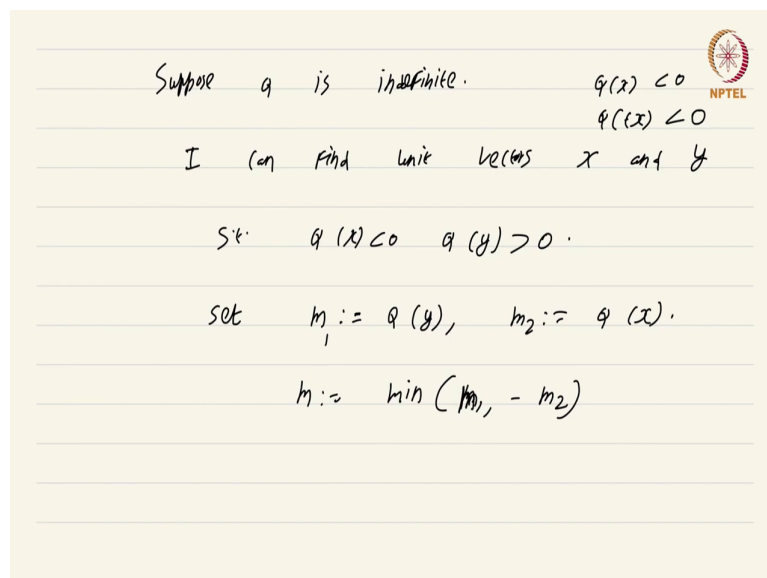 Suppose Q is indefinite. Q(x) < 0
NPTEL
Q(tx) < 0
I can find unit vectors x and y
s.t. Q(x) < 0 Q(y) > 0.
set m₁ := Q(y), m₂ := Q(x).
m := min(m₁, - m₂)